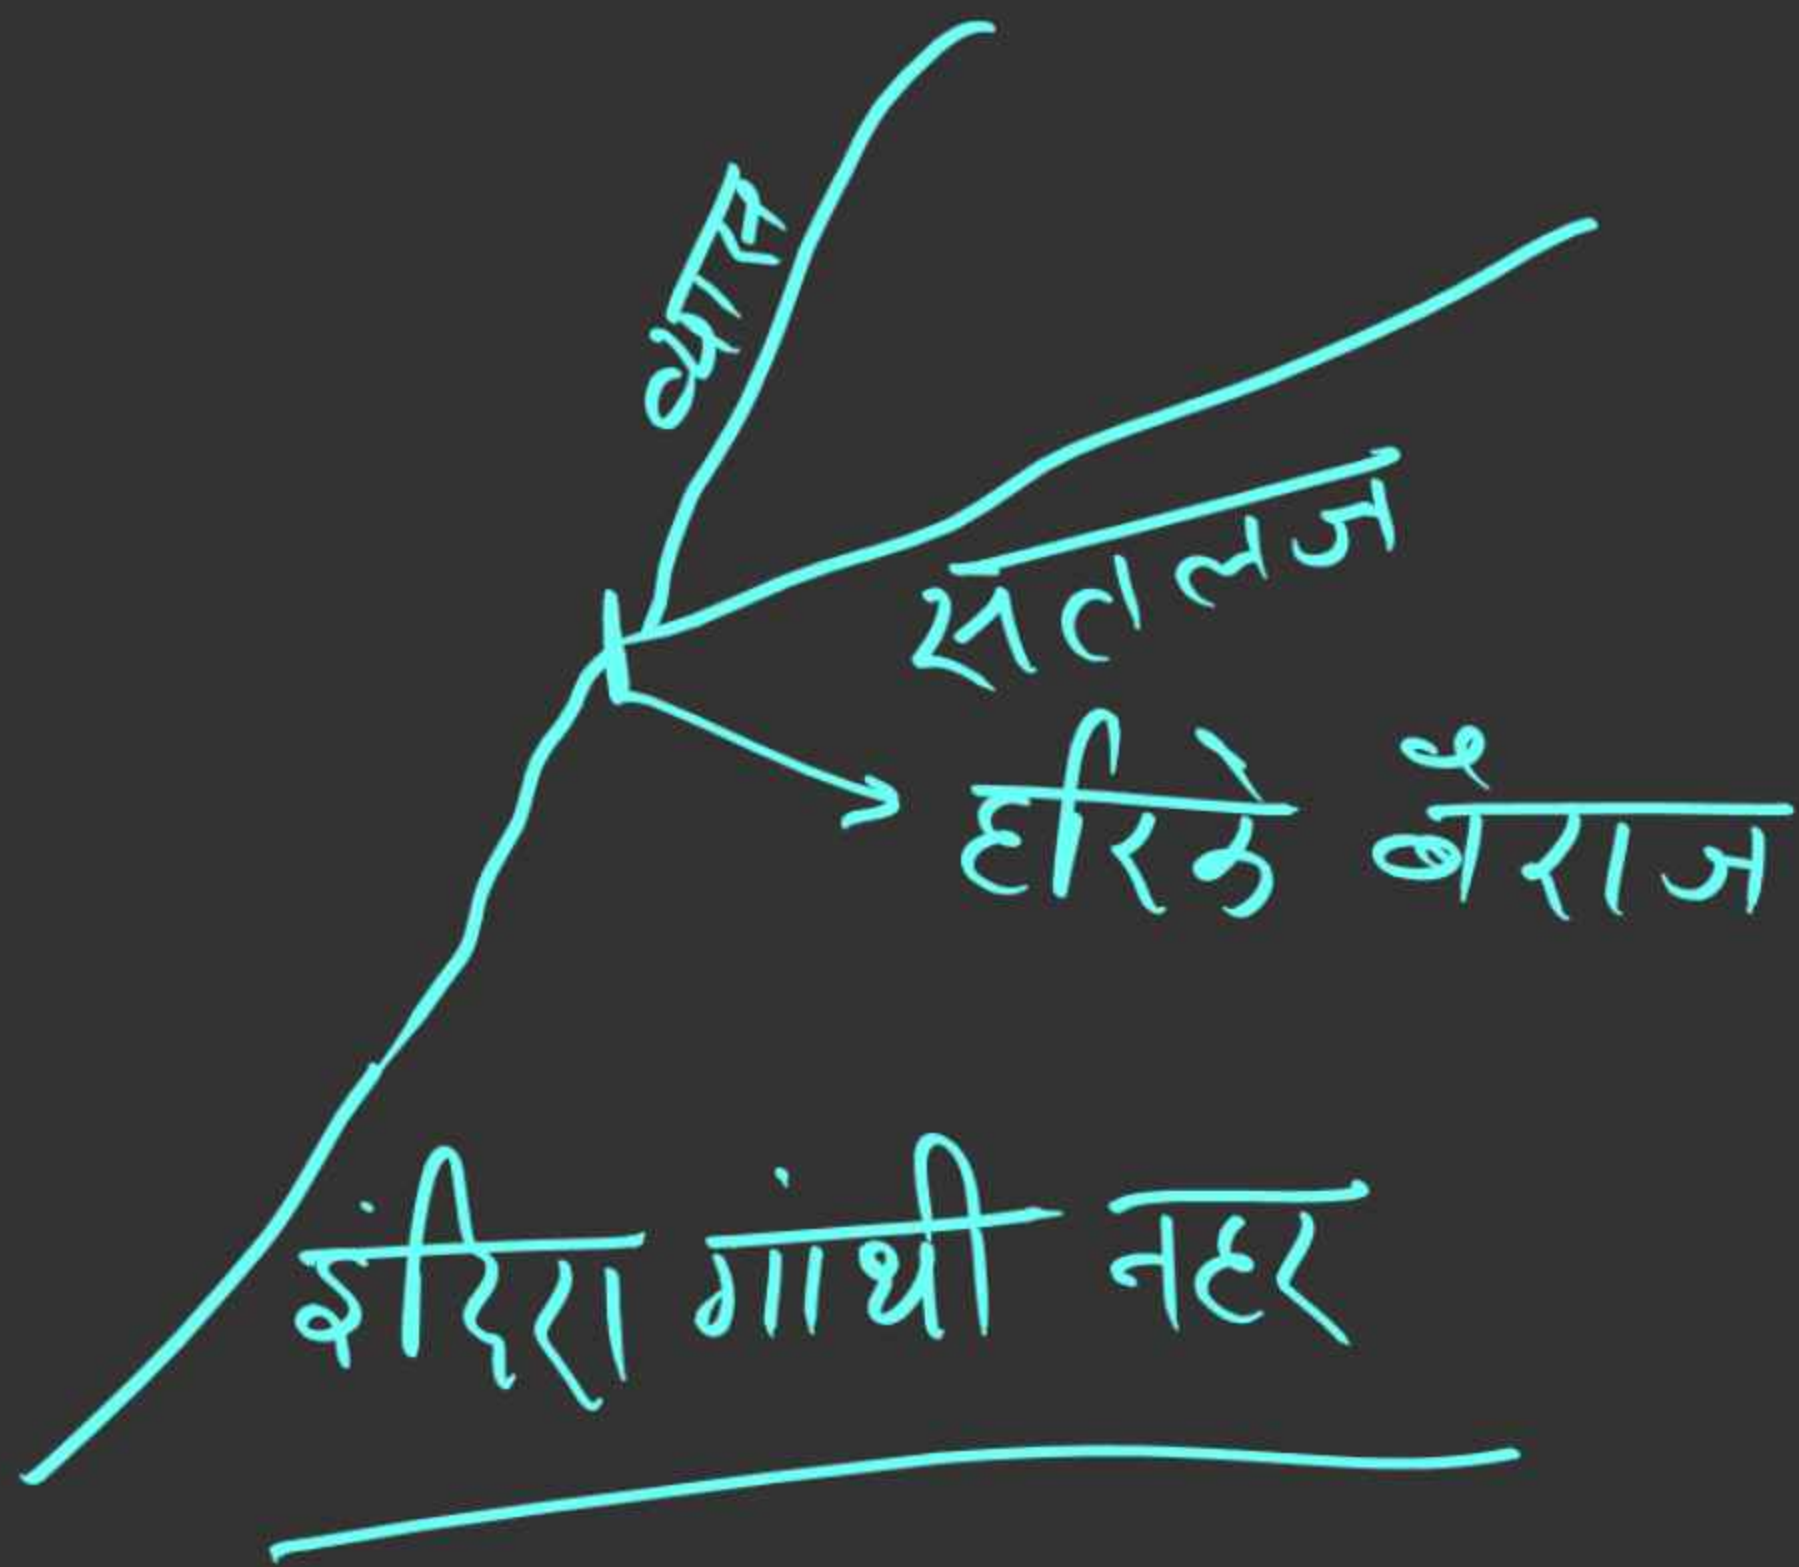 व्यास
सतलज
हरिके बैराज
इंदिरा गांधी नहर